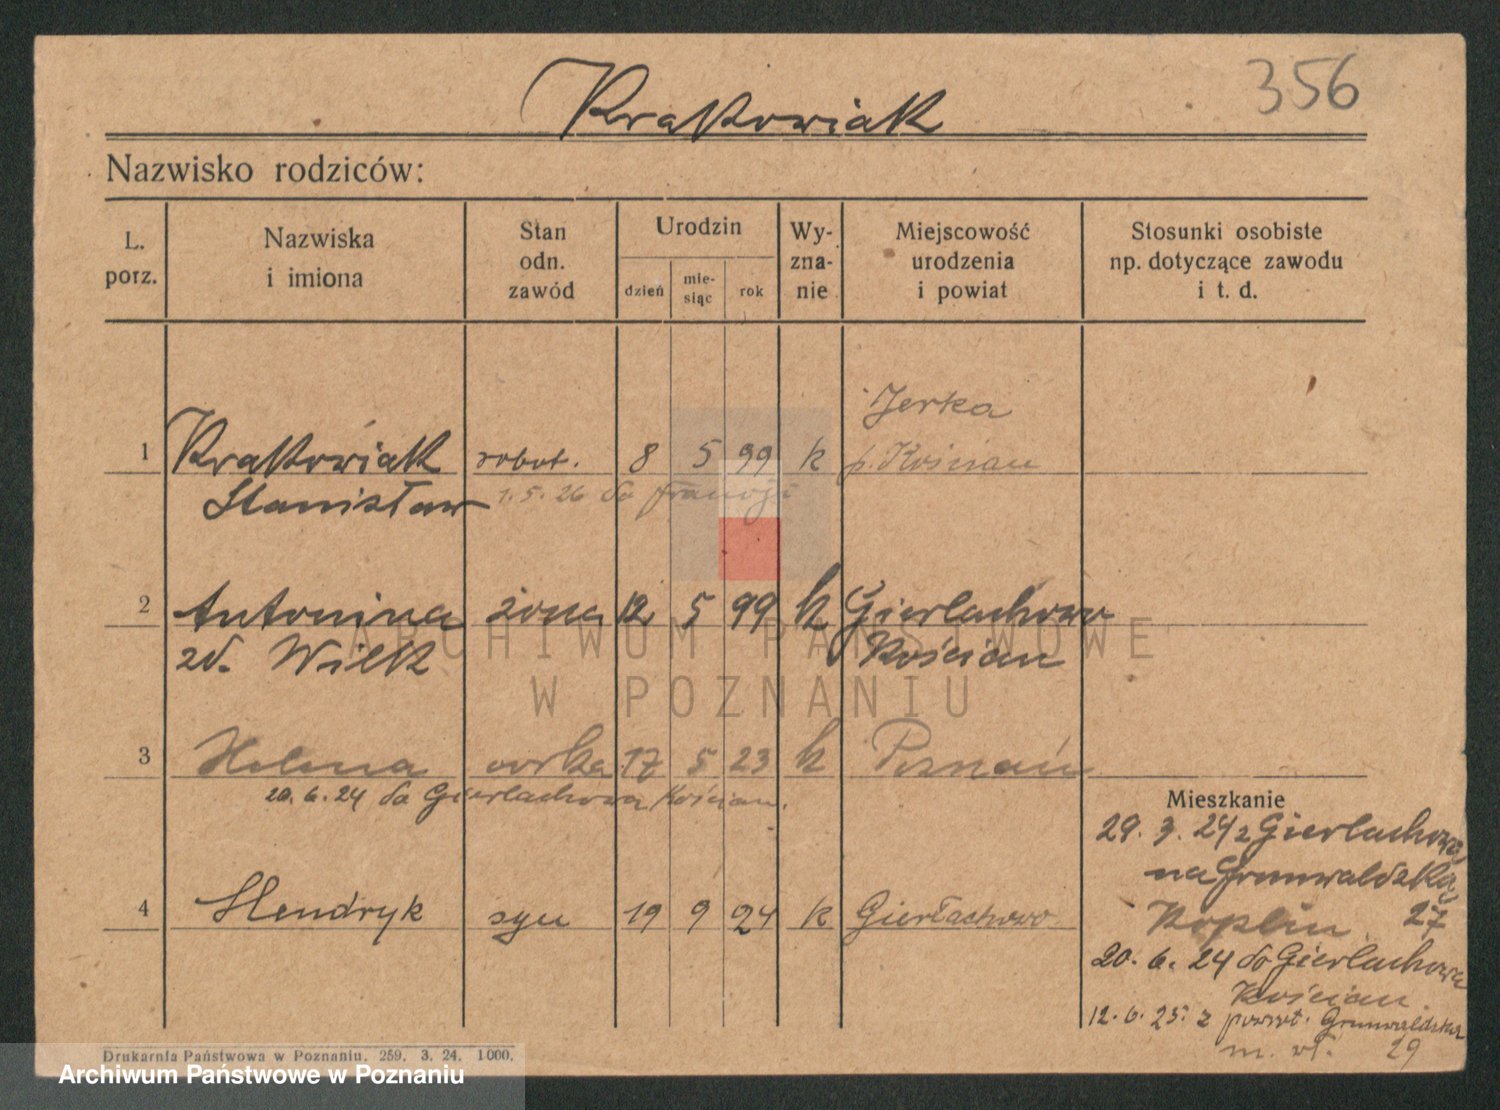 356
Krakowiak
Nazwisko rodziców:
L. porz.
Nazwiska i imiona
Stan odn. zawód
Urodzin
dzień
mie-siąc
rok
Wy-zna-nie
Miejscowość urodzenia i powiat
Stosunki osobiste np. dotyczące zawodu i t. d.
Jerka
1 Krakowiak robot. 8 5 99 k p. Kościan
Stanisław 1.5.26 do Francji
2 Antonina żona 12. 5 99 k Gierlachowo
zd. Wilk Kościan
ARCHIWUM PAŃSTWOWE
W POZNANIU
3 Helena córka 17 5 23 k Poznań
20.6.24 do Gierlachowa Kościan.
4 Hendryk syn 19 9 24 k Gierłachowo
Mieszkanie
29. 3. 24 z Gierlachowa
na Grunwaldzka
27
20. 6. 24 do Gierlachowa
Kościan.
12. 6. 25. z powrt. Grunwaldzka
29
Drukarnia Państwowa w Poznaniu. 259. 3. 24. 1000.
Archiwum Państwowe w Poznaniu